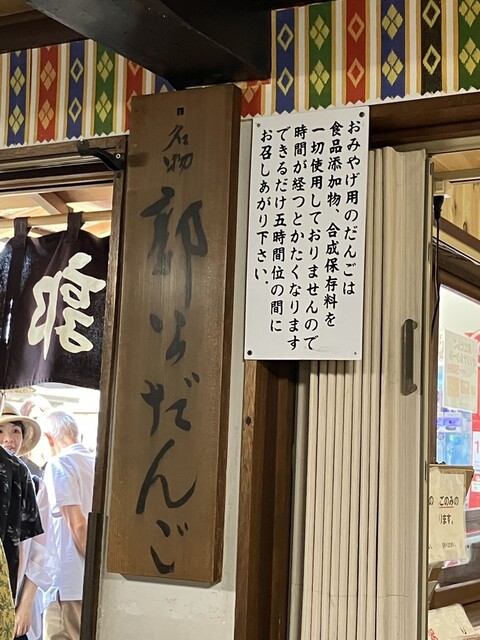 名物
郭公だんご
おみやげ用のだんごは
食品添加物、合成保存料を
一切使用しておりませんので
時間が経つとかたくなります
できるだけ五時間位の間に
お召しあがり下さい。
郭
ごのみの
ります。